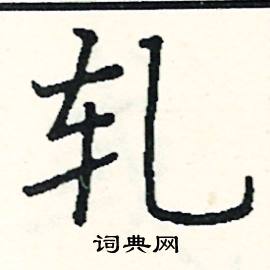 轧
词典网